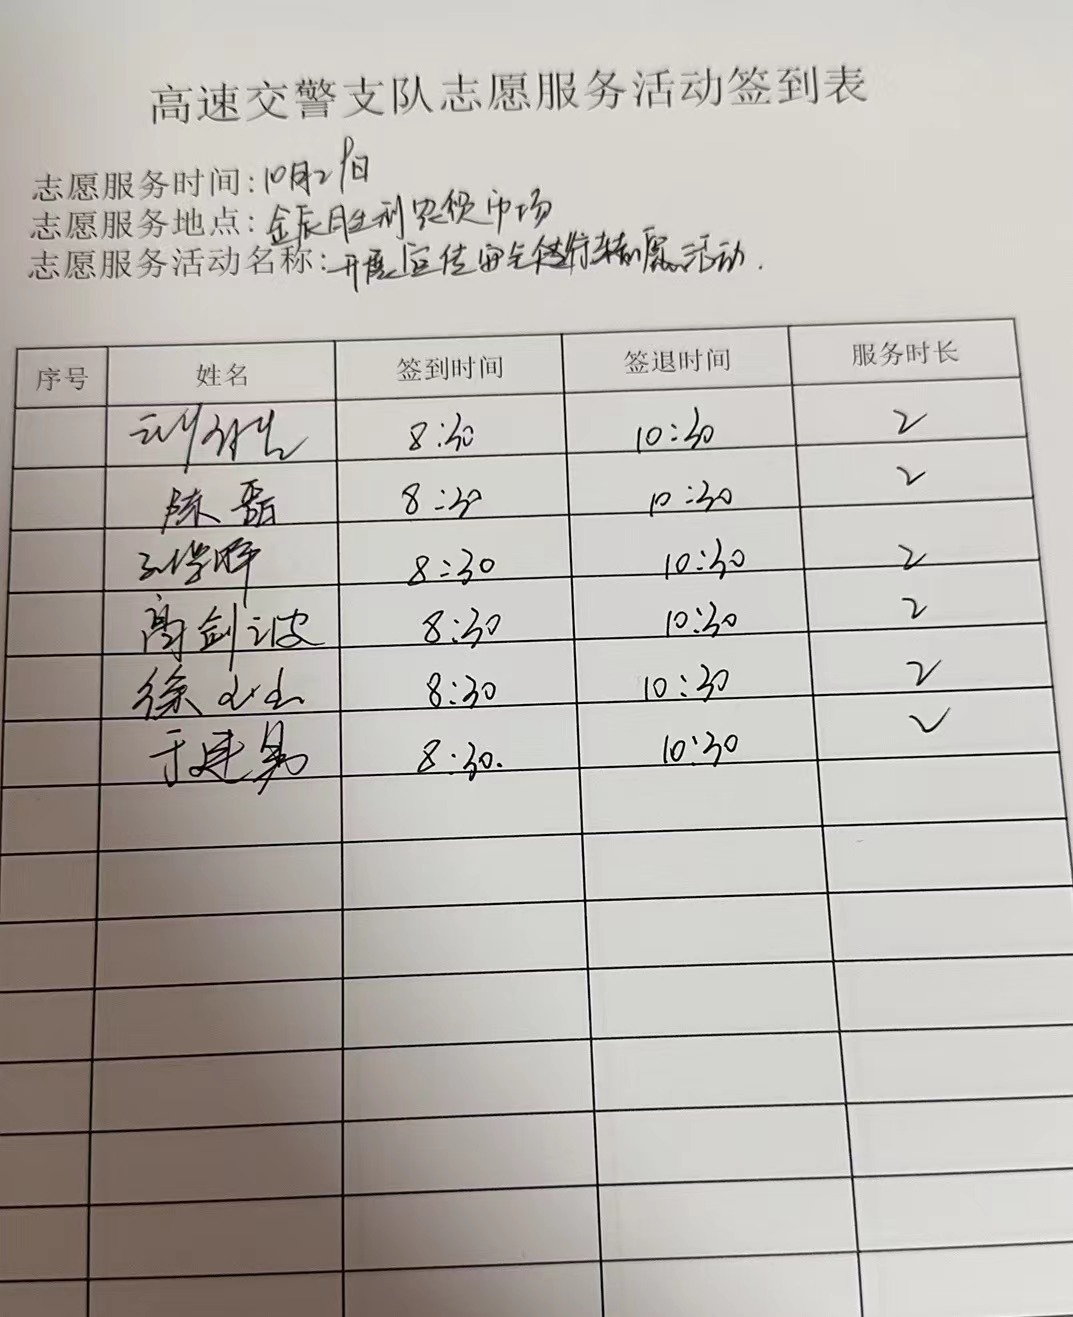 高速交警支队志愿服务活动签到表
志愿服务时间:10月29日
志愿服务地点:金辰胜利农贸市场
志愿服务活动名称:开展宣传安全 活动.
序号 姓名 签到时间 签退时间 服务时长
8:30 10:30 2
陈磊 8:30 10:30 2
8:30 10:30 2
高剑波 8:30 10:30 2
徐 8:30 10:30 2
于建 8:30. 10:30 2